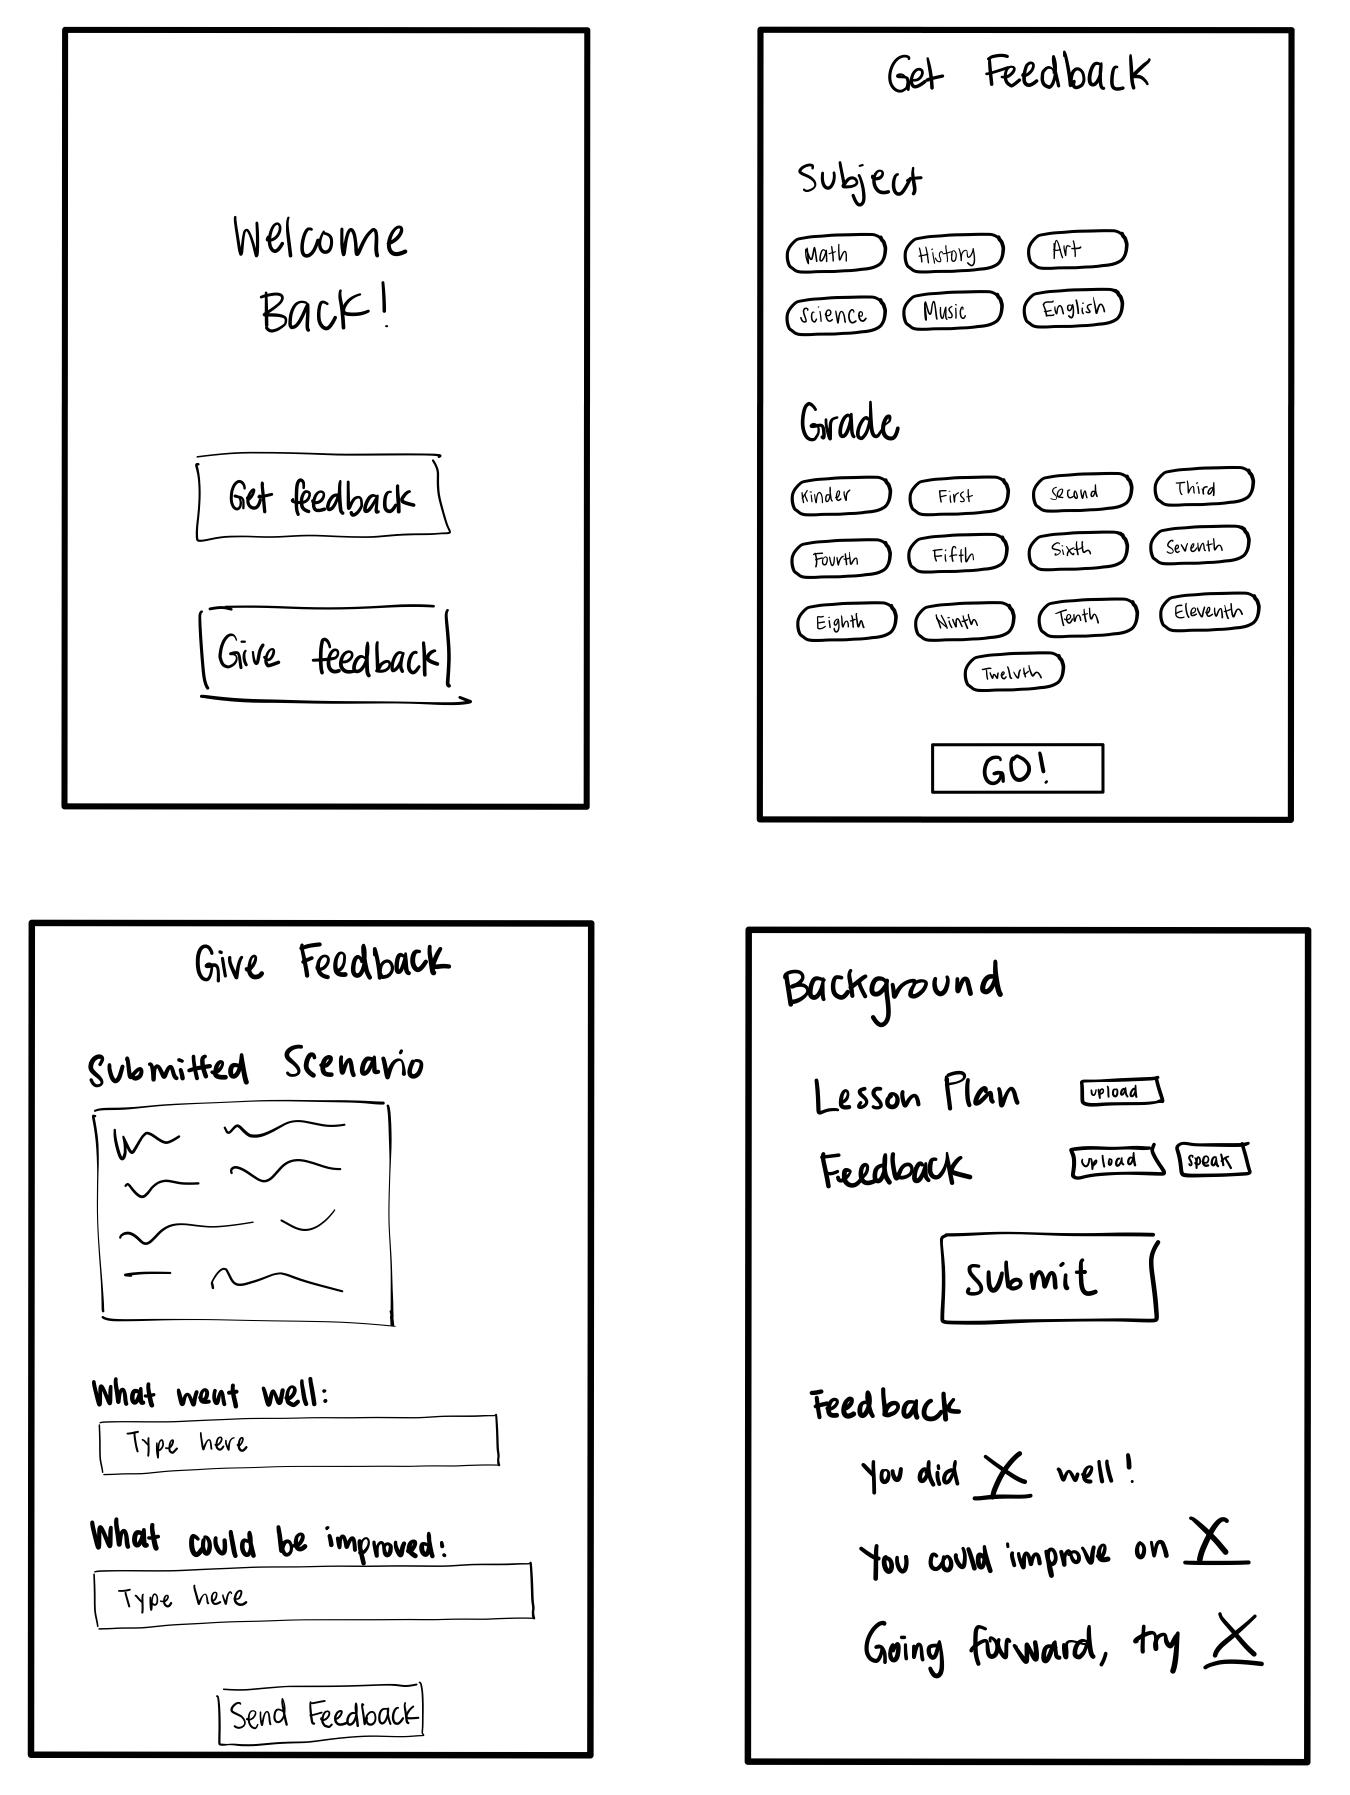 Welcome
Back!
Get feedback
Give feedback
Get Feedback
Subject
Math History Art
Science Music English
Grade
Kinder First Second Third
Fourth Fifth Sixth Seventh
Eighth Ninth Tenth Eleventh
Twelvth
GO!
Give Feedback
Submitted Scenario
What went well:
Type here
What could be improved:
Type here
Send Feedback
Background
Lesson Plan upload
Feedback upload speak
Submit
Feedback
You did X well!
You could improve on X
Going forward, try X